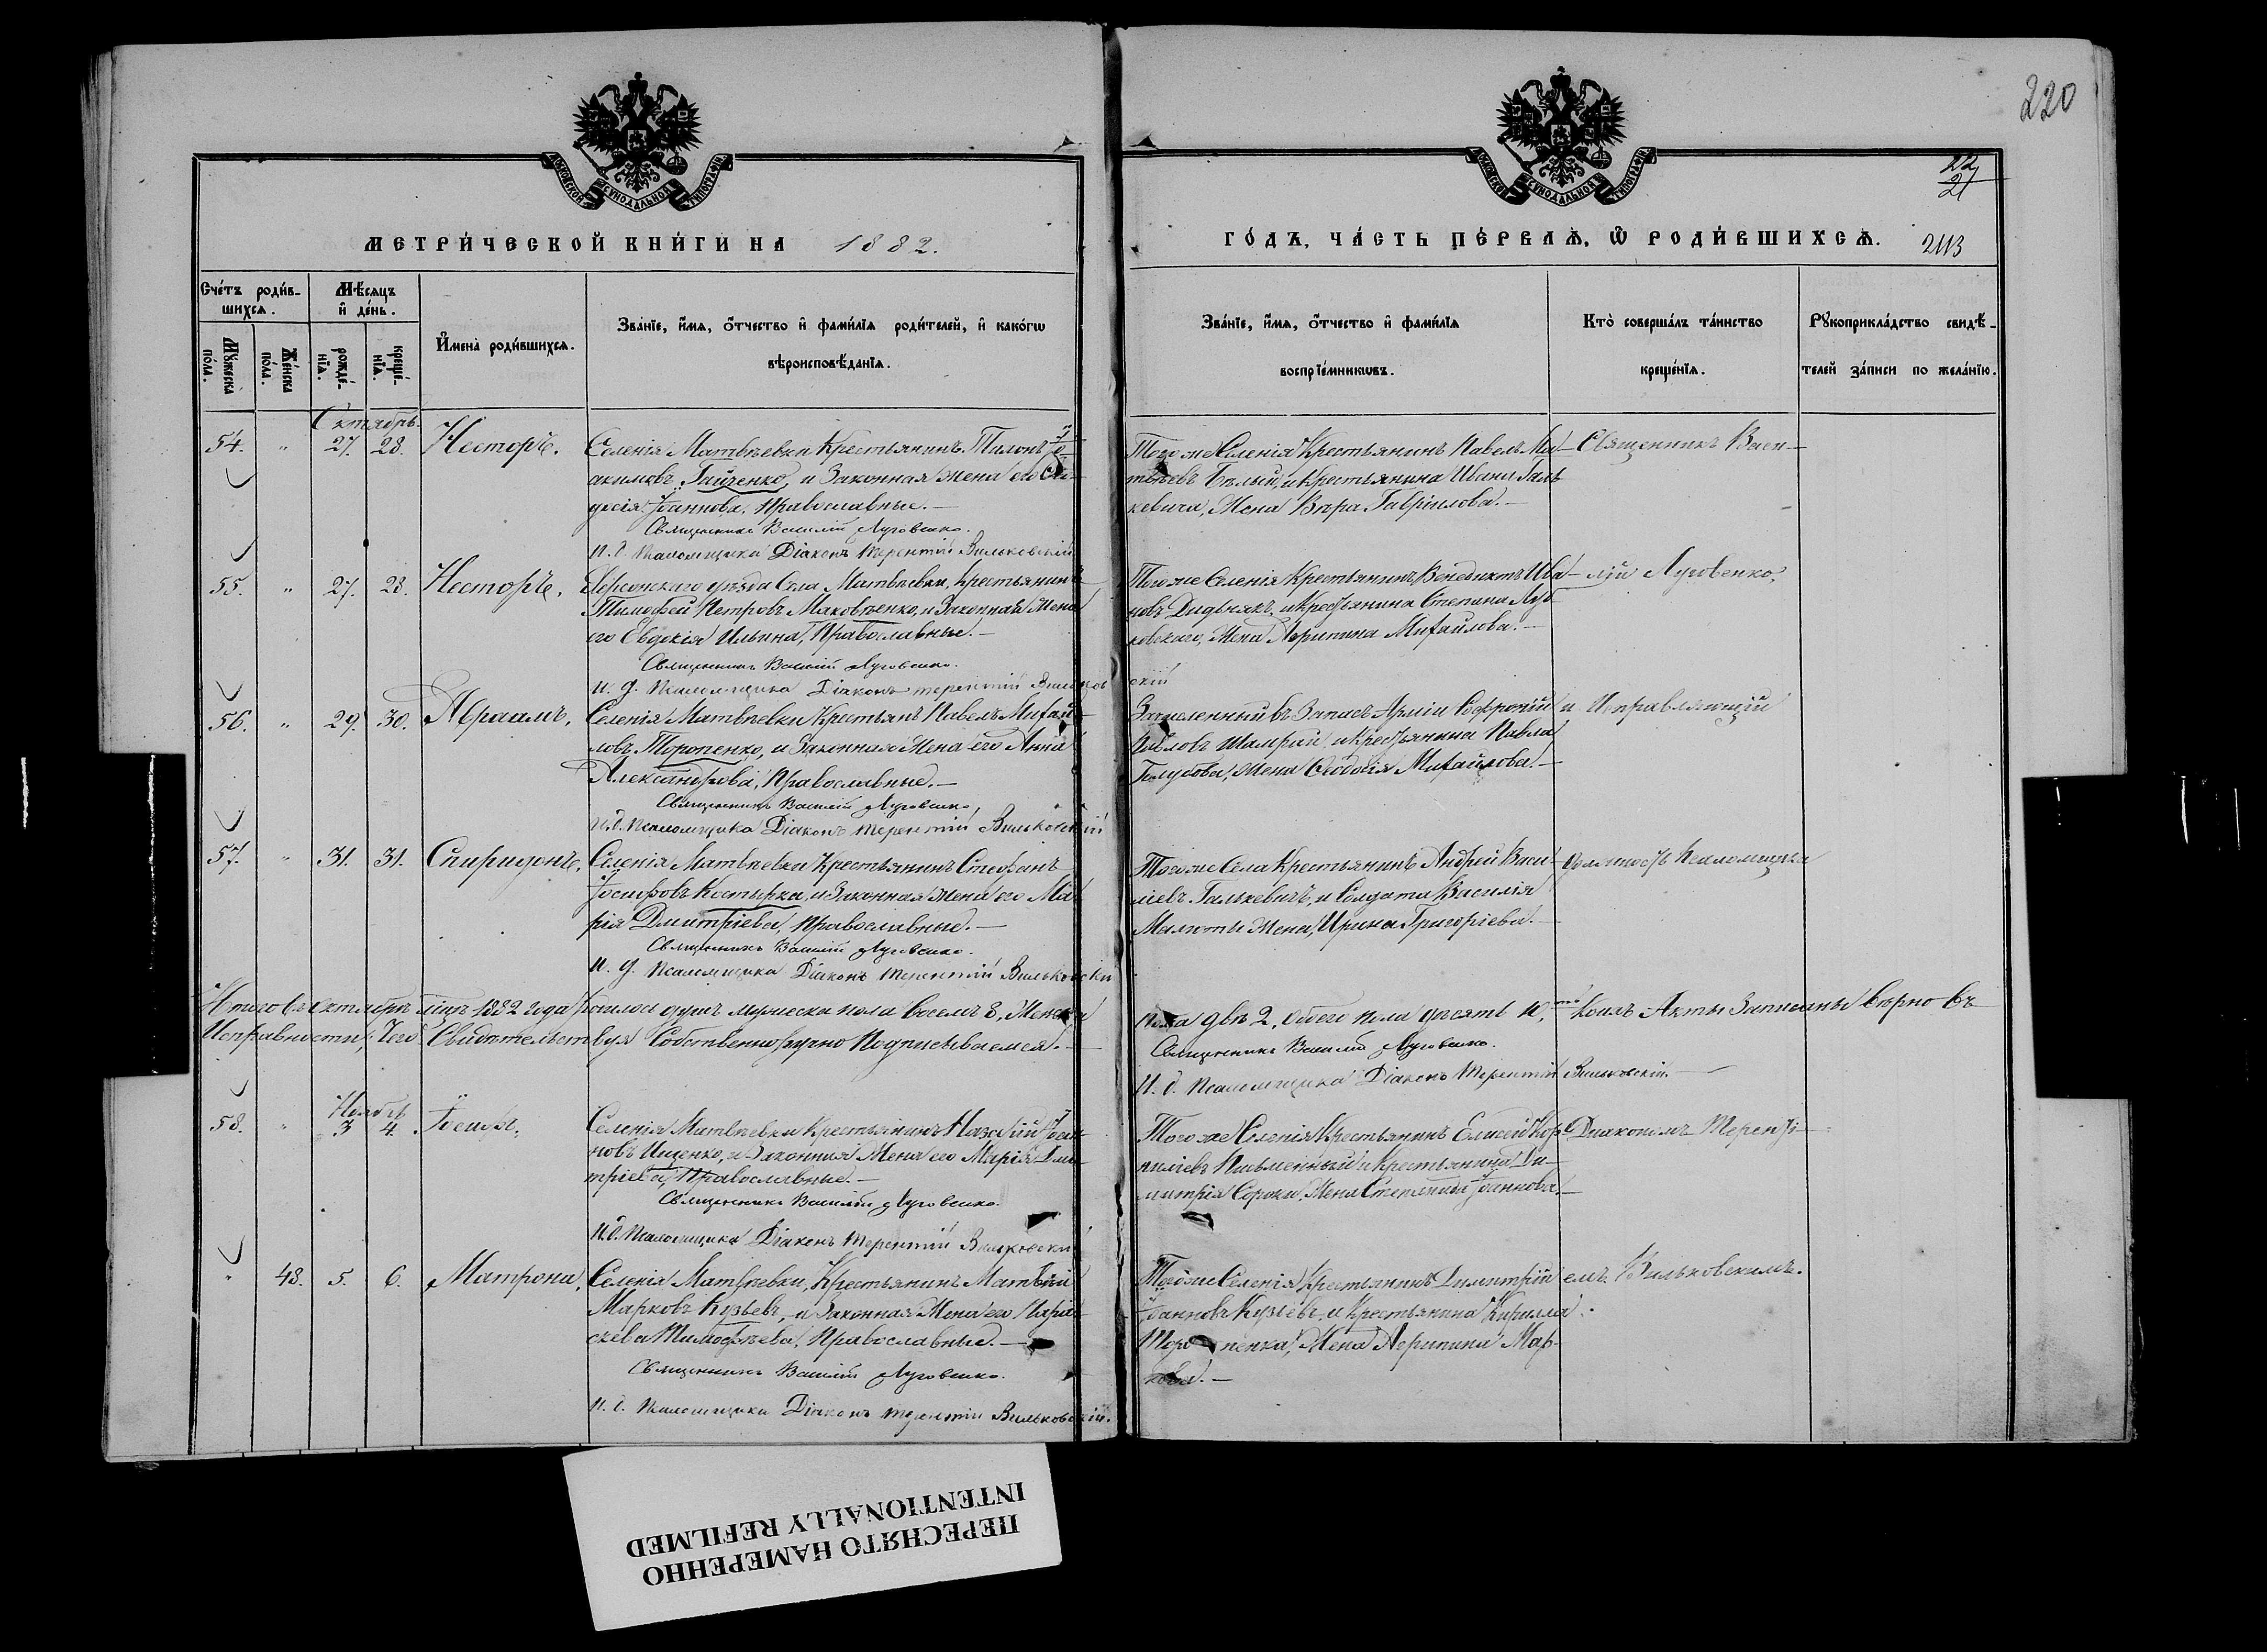 220
22
21
МОСКОВСКОЙ СѴНОДАЛЬНОЙ ТИПОГРАФІИ
МОСКОВСКОЙ СѴНОДАЛЬНОЙ ТИПОГРАФІИ
МЕТРИ́ЧЕСКОЙ КНИ́ГИ НА 1882.
ГО́ДЪ, ЧА́СТЬ ПЕ́РВАѦ, Ѿ РОДИ́ВШИХСѦ. 2113
Счéтъ роди́в-
шихсѧ.
Мѣсѧцъ
и҆ дéнь.
Мꙋжеска пóла.
Жéнска пóла.
рождé-
нїѧ.
крещé-
нїѧ.
И҆мена̀ роди́вшихсѧ.
Звáнїе, и҆́мѧ, ѻ҆́тчество и҆ фами́лїѧ роди́телей, и҆ какóгѡ
вѣроисповѣ́данїѧ.
Звáнїе, и҆́мѧ, ѻ҆́тчество и҆ фами́лїѧ
воспрїéмникѡвъ.
Кто̀ совершáлъ тáинство
крещéнїѧ.
Рꙋкоприклáдство свидѣ́-
телей зáписи по желáнїю.
Октябрь.
54. " 27. 28. Несторъ.
Селенія Матвѣевки Крестьянинъ Тихонъ Іо-
акимовъ Гайченко, и Законная Жена его Ев-
докія Іоаннова, Православные.—
Священникъ Василій Луговенко.
И. д. Псаломщика Діаконъ Терентій Вильковскій
Того же Селенія Крестьянинъ Павелъ Ма-
твѣевъ Бѣлый, и Крестьянина Ивана Галь
кевича, Жена Вѣра Гаврилова.—
Священникъ Васи-
55. " 27. 28. Несторъ,
Херсонскаго уѣзда Села Матвѣевки, Крестьянинъ
Тимофей Петровъ Маковѣенко, и Законная Жена
его Евдокія Ильина, Православные.—
Священникъ Василій Луговенко.
И. д. Псаломщика Діаконъ Терентій Вильков
скій
Того же Селенія Крестьянинъ Венедиктъ Ива-
новъ Дидьнякъ, и Крестьянина Степана Луб
ковскаго, Жена Агрипина Михайлова.—
лій Луговенко,
56. " 29. 30. Авраамъ,
Селенія Матвѣевки Крестьянъ Павелъ Михай-
ловъ Торопенко, и Законная Жена его Анна
Александрова, Православные.—
Священникъ Василій Луговенко,
И. д. Псаломщика Діаконъ Терентій Вильковскій
Зачисленный въ Запасъ Арміи Софроній
Павловъ Шамрай, и Крестьянина Павла
Голубова, Жена Ѳеодосія Михайлова.—
и Исправляющій
57. " 31. 31. Спиридонъ,
Селенія Матвѣевки Крестьянинъ Стефанъ
Іосифовъ Костырка, и Законная Жена его Ма-
рія Дмитріева, Православные.—
Священникъ Василій Луговенко.
И. д. Псаломщика Діаконъ Терентій Вильковскій
Того же Села Крестьянинъ Андрей Васи-
ліевъ Галькевичъ, и Солдата Василія
Малюты Жена, Ирина Григоріева.—
должность Псаломщика
Итого въ Октябрѣ мцѣ 1882 года родилось душъ мужеска пола восемь 8, Женска
пола двѣ 2, Обоего пола десять 10, коихъ Акты Записаны вѣрно въ
Исправности, Чего Свидѣтельствуя Собственноручно Подписываемся.—
Священникъ Василій Луговенко.
И. д. Псаломщика Діаконъ Терентій Вильковскій.—
Ноябрь
58. " 3 4.
Селенія Матвѣевки Крестьянинъ Назарій Іоан-
новъ Ищенко, и Законная Жена его Марія Дми-
тріева, Православные.—
Священникъ Василій Луговенко.
И. д. Псаломщика Діаконъ Терентій Вильковскій
Того же Селенія Крестьянинъ Елисей Кор-
ниліевъ Письменный и Крестьянина Ди-
митрія Сороки, Жена Степанида Іоаннова.—
Діакономъ Терентi-
" 48. 5. 6. Матрона,
Селенія Матвѣевки, Крестьянинъ Матвѣй
Марковъ Кузьевъ, и Законная Жена его Пара-
скева Тимофѣева, Православные.—
Священникъ Василій Луговенко.
И. д. Псаломщика Діаконъ Терентій Вильковскій.
Того же Селенія Крестьянинъ Димитрій
Іоанновъ Кузьевъ, и Крестьянина Кирилла
Торопенка, Жена Агрипина Мар-
кова.—
емъ Вильковскимъ.
ПЕРЕСНЯТО НАМЕРЕННО
INTENTIONALLY REFILMED